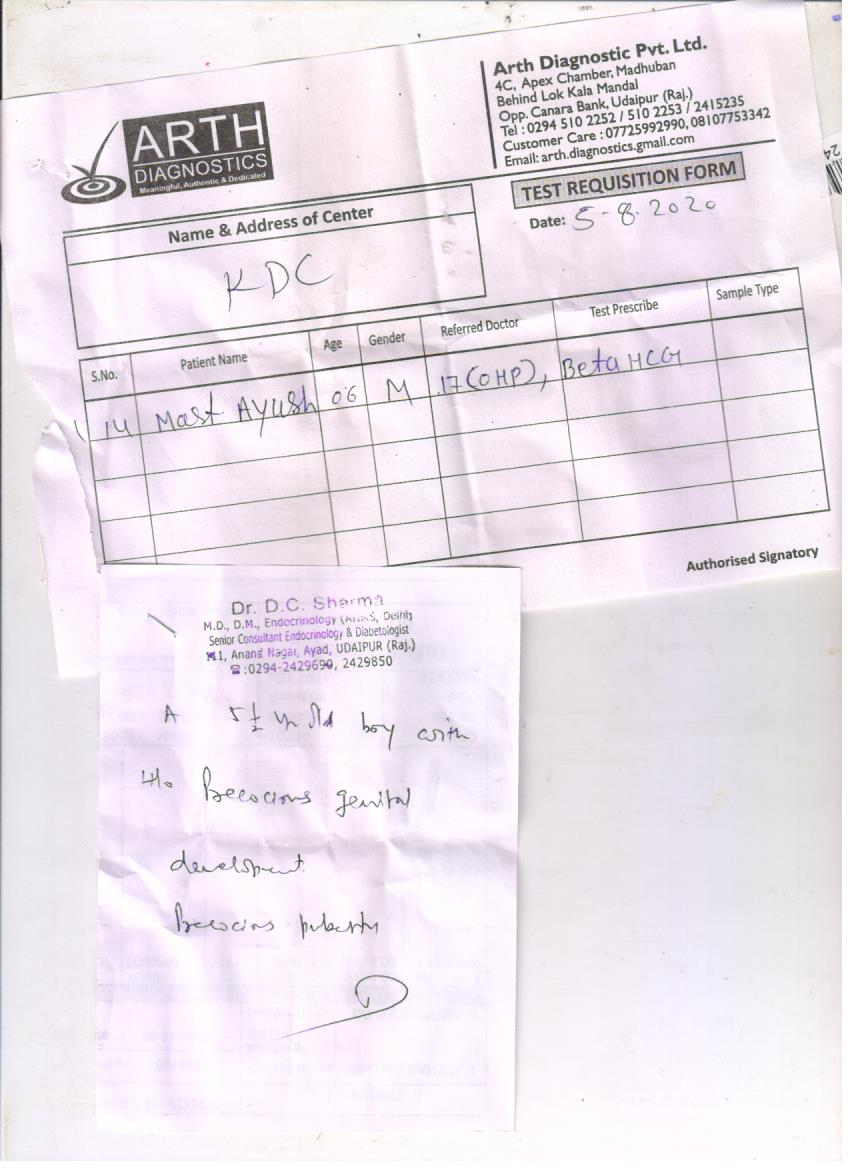 ARTH
DIAGNOSTICS
Meaningful, Authentic & Dedicated
Arth Diagnostic Pvt. Ltd.
4C, Apex Chamber, Madhuban
Behind Lok Kala Mandal
Opp. Canara Bank, Udaipur (Raj.)
Tel : 0294 510 2252 / 510 2253 / 2415235
Customer Care : 07725992990, 08107753342
Email: arth.diagnostics.gmail.com
TEST REQUISITION FORM
Date: 5-8.2020
Name & Address of Center
KDC
S.No. Patient Name Age Gender Referred Doctor Test Prescribe Sample Type
14 Mast. Ayush 06 M 17(OHP), Beta HCG
Authorised Signatory
Dr. D.C. Sharma
M.D., D.M., Endocrinology (AIIMS, Delhi)
Senior Consultant Endocrinology & Diabetologist
11, Anand Nagar, Ayad, UDAIPUR (Raj.)
☎:0294-2429690, 2429850
A 5½ yr old boy with
H/o Precocious genital
development.
Precocious puberty
24